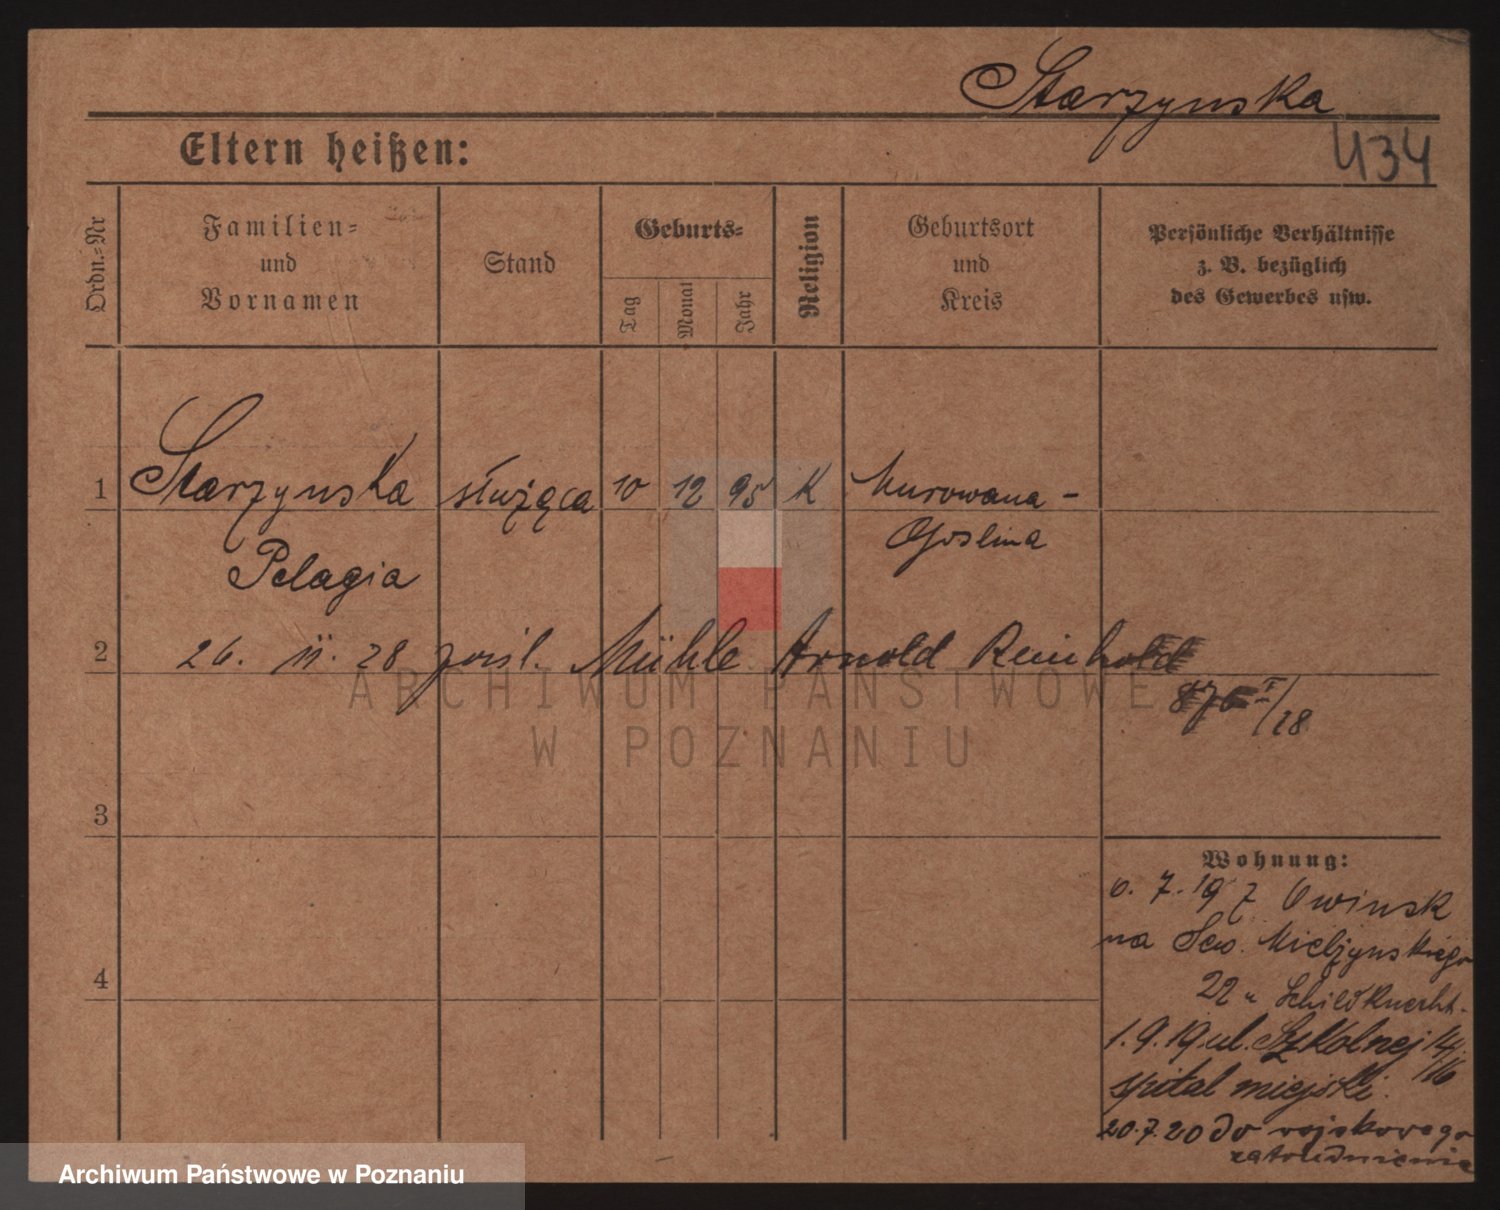 Starzynska
434
Eltern heißen:
Ordn.-Nr
Familien-
und
Vornamen
Stand
Geburts-
Tag
Monat
Jahr
Religion
Geburtsort
und
Kreis
Persönliche Verhältnisse
z. B. bezüglich
des Gewerbes usw.
1 Starzynska służąca 10 12 95 K Murowana-
Goslina
Pelagia
2 26. 11. 28 Mühle Arnold Reinhold
/28
ARCHIWUM PAŃSTWOWE
W POZNANIU
3
Wohnung:
7. 19 z Owinsk
na Sew. Mielzynskiego
4
22 u Schildknecht.
1.9.19 ul. Szkolnej 14/16
szpital miejski.
20.7.20 do wojskowego
zatrudnienia
Archiwum Państwowe w Poznaniu